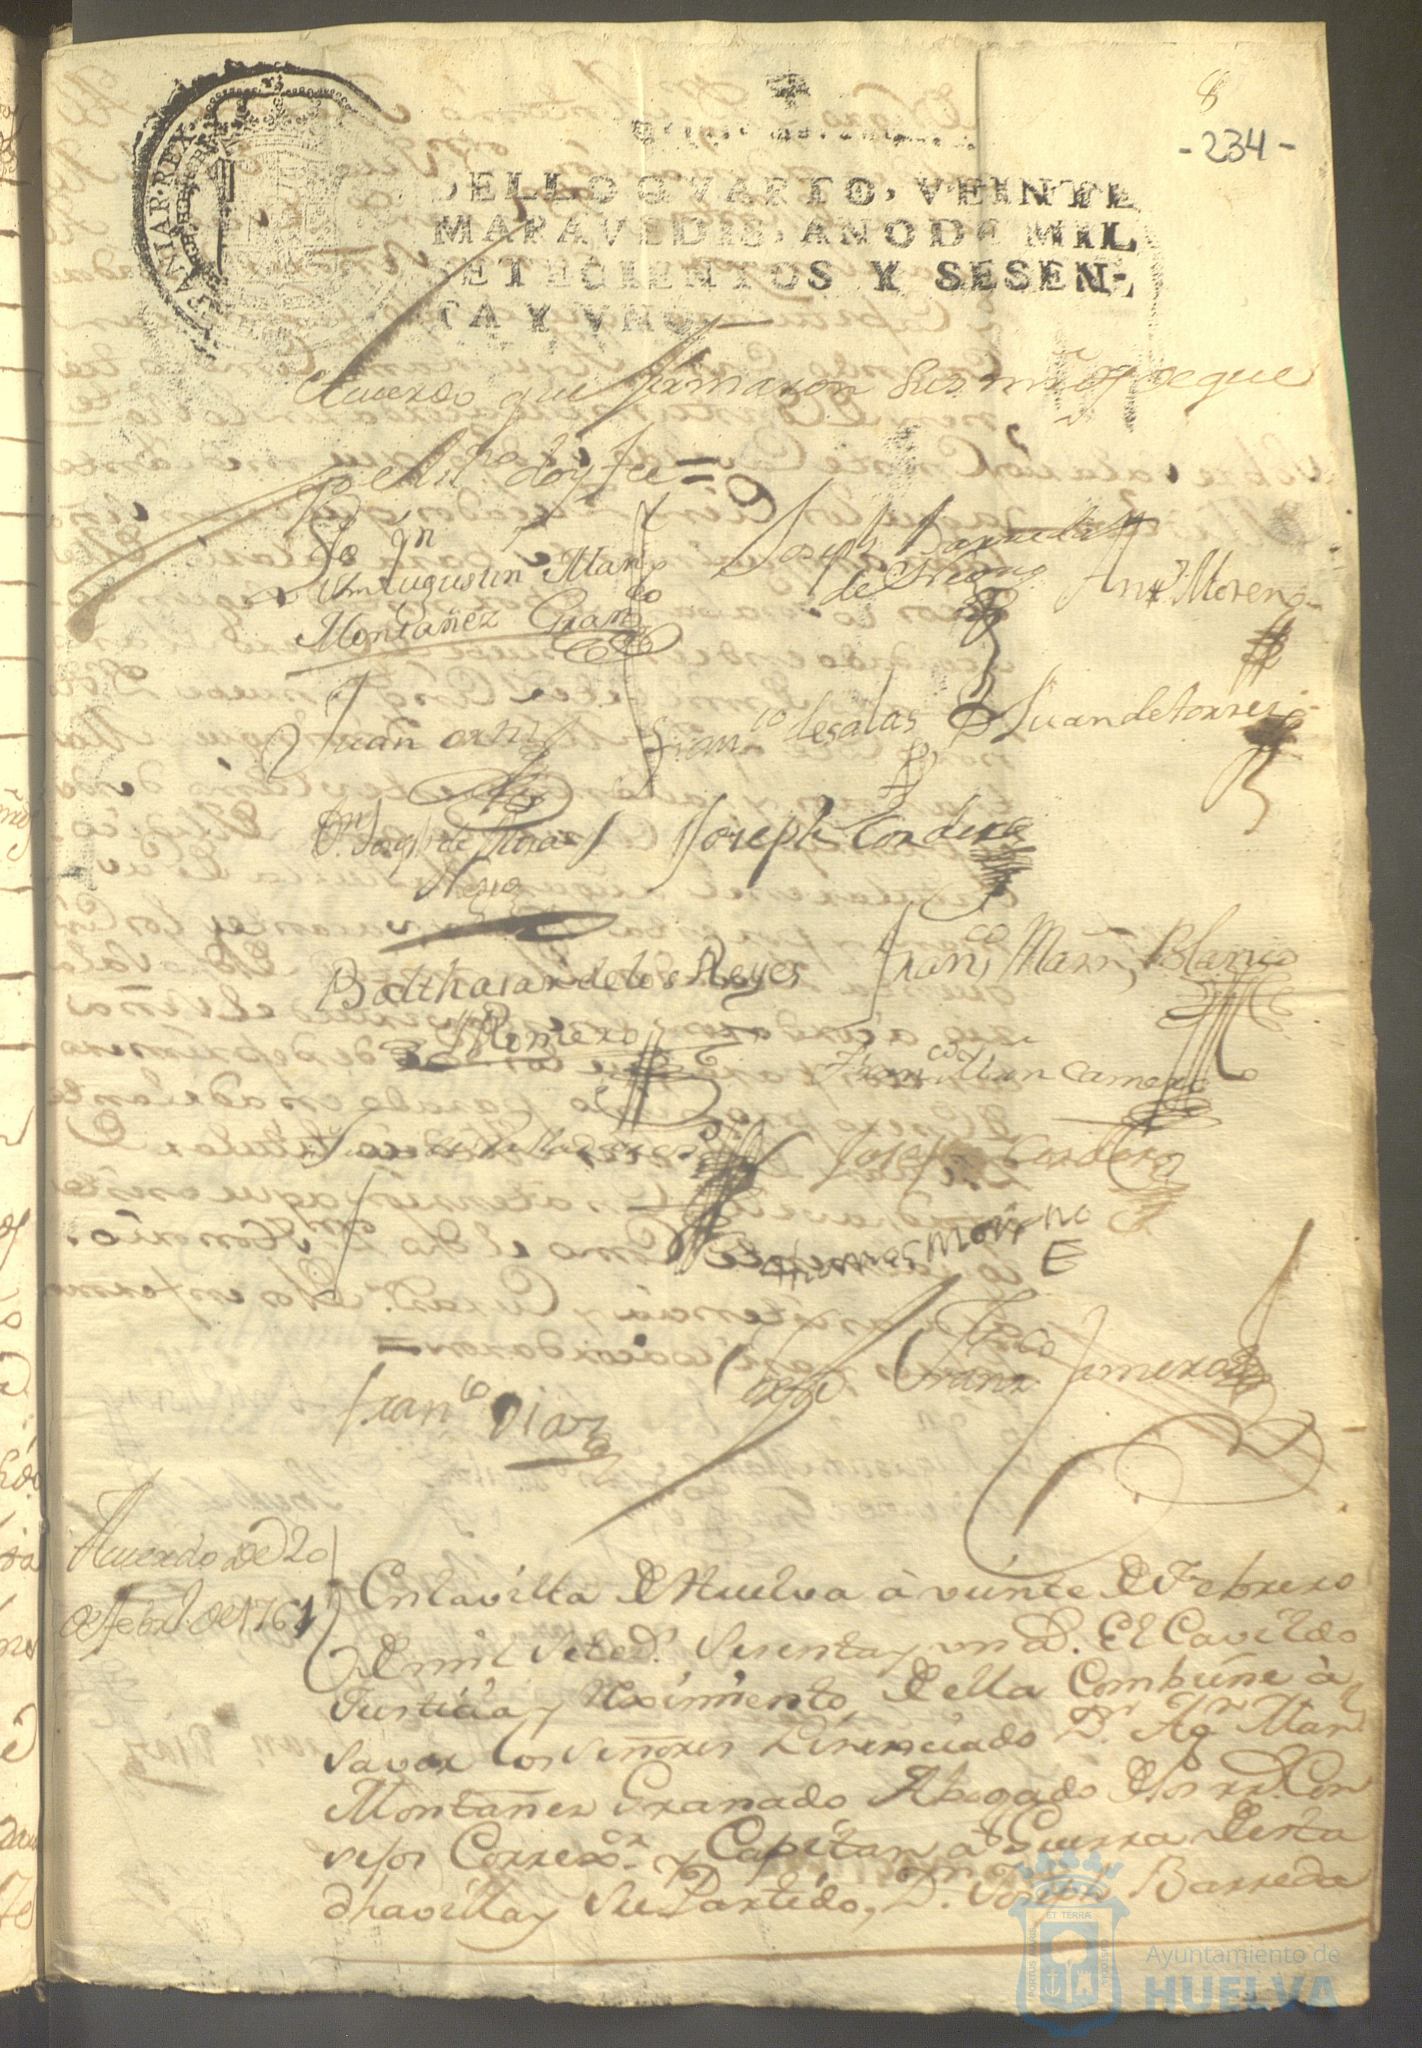 8
-234-
HISPANIAR·REX
SELLO QVARTO, VEINTE
MARAVEDIS, AÑO DE MIL
SETECIENTOS Y SESEN-
TA Y VNO.
Acuerdo que firmaron sus mrds de que
yo el Ssno doy fee =
Lizdo Dn Augustin Marn
Montañez Granado
Joseph Barreda
de
Antto Moreno
Juan ortiz
Franco de salas
Juan de torres
Dn Joseph de
Joseph Cordero
Balthasar de los Reyes
Romero
Franco Marn Blanco
Franco Mrn Camero
Joseph Cordero
thomas Moreno
E
Franco Diaz
Franco Jimenez
Acuerdo de 20
de febro de 1761
En la villa de Huelva à veinte de Febrero
de mil setezs sesenta y un as. El Cavildo
Justicia y Reximiento della Combiene à
saver los señores Lizenciado Dn Agn Marn
Montañez Granado Abogado de los rrs Con
sejos Correxor y Capitan à Guerra desta
dha villa y su Partido, Dn Joseph Barreda
Ayuntamiento de
HUELVA